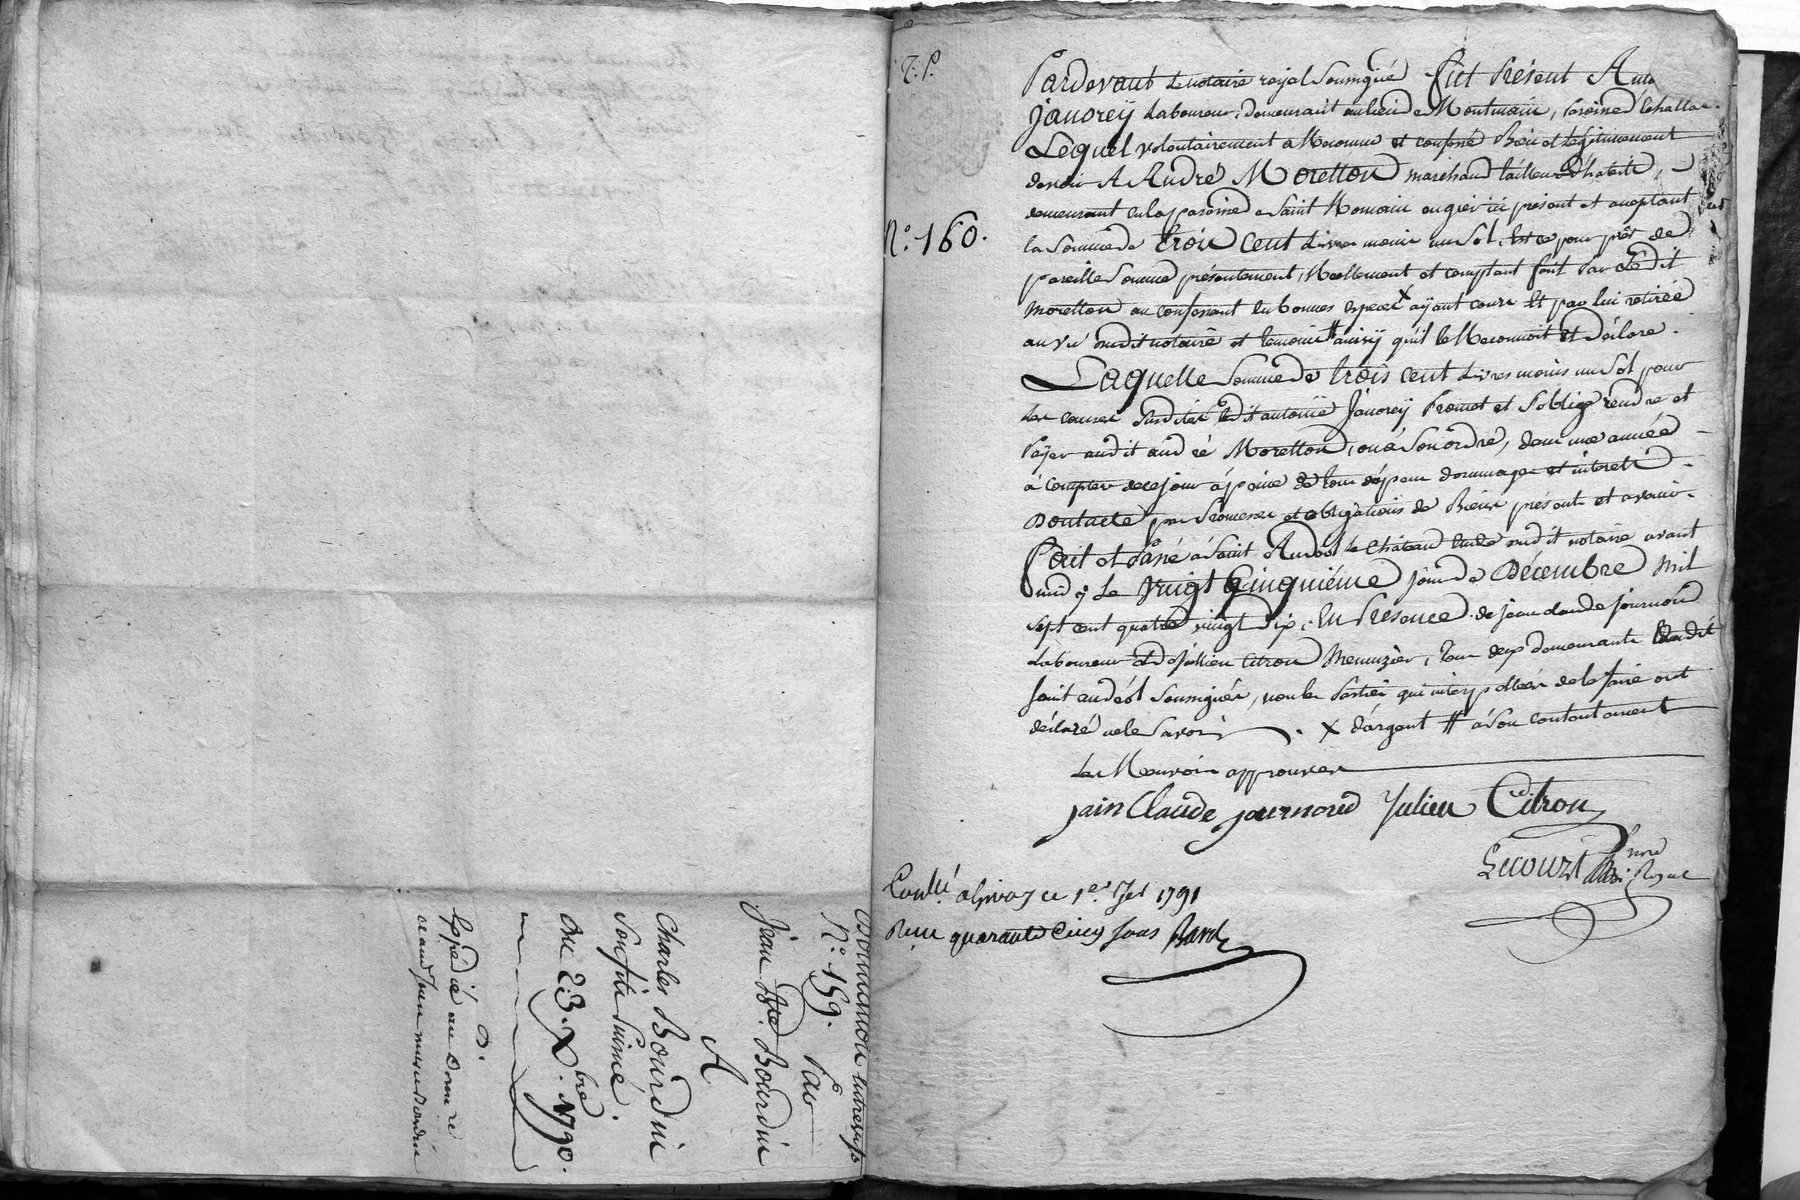 Donnation entrevifs
N°. 159. Par
Jean Bte. Bourdin
A
Charles Bourdin
Son fils Puiné.
Du 23. Xbre. 1790.
D.
Expédié au Donnre
T. P.
N°. 160.
Pardevant Le notaire royal Soussigné fut Présent Anto
Janorey Laboureur, demeurant au lieu de Montmain, Paroisse d'échalla
Lequel volontairement a Reconnu et confessé Bien et Légitimement
devoir A André Moretton marchand tailleur d'habits,
demeurant en la paroisse de Saint Romain en gier ici présent et acceptant
la Somme de trois cent Livres moins un Sol, Et ce pour prêt de
pareille Somme présentement, Réellement et comptant fait Par Ledit
Moretton au confessant en bonnes espèces X ayant cours Et par lui retirée
au vu dudit notaire et temoins # ainsy qu'il le Reconnoit Et Déclare.
Laquelle Somme de trois cent Livres moins un Sol pour
Les causes Susdites Ledit antoine Janorey Promet et S'oblige rendre et
Payer audit andré Moretton, ou à Son ordre, dans une année
à compter de ce jour à peine de tous dépens dommages et interets
Dont acte par Promesses et obligations de Biens présents et avenir.
Fait et Passé à Saint Andéol le Château Etude dudit notaire avant
midy Le Vingt Cinquiéme jour de Décembre mil
Sept cent quatre vingt dix, En Presence de jean claude journoud
Laboureur Et de jullien Citron Menuzier, tous deux demeurants audit
Saint andéol Soussignés, non les Parties qui interpellées de le faire ont
déclaré ne le Savoir. X d'argent # à Son contentement
Les Renvois approuvés
jain Claude journoud Julien Citron
Lecourt Nore Royal
Conllé a Givors ce 1er. Jer 1791
Reçu quarante Cinq Sous Bard